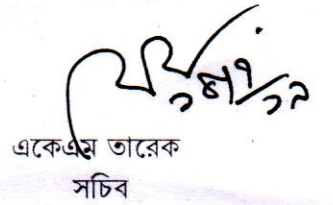 একেএম তারেক
সচিব